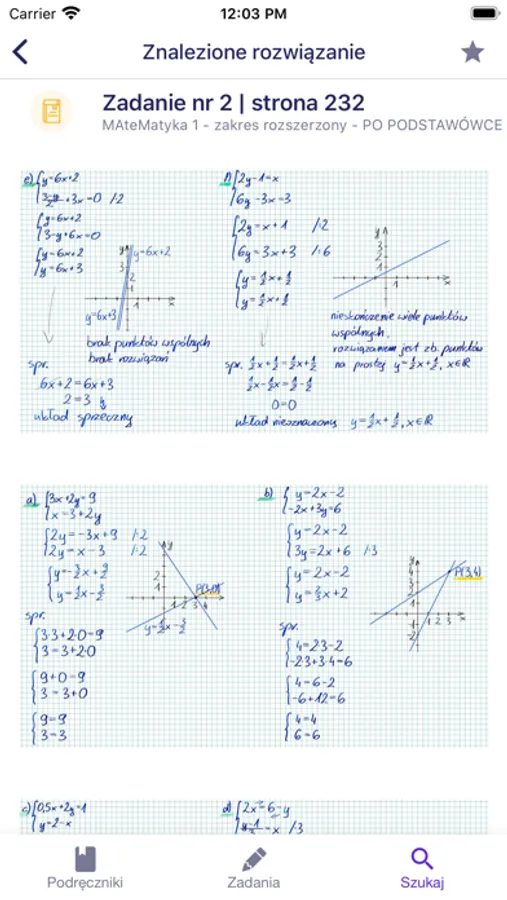 Carrier 12:03 PM
Znalezione rozwiązanie
Zadanie nr 2 | strona 232
MAteMatyka 1 - zakres rozszerzony - PO PODSTAWÓWCE
e) y=6x+2
+3x=0 /·2
y=6x+2
3-y+6x=0
y=6x+2
y=6x+3
y=6x+2
y=6x+3
brak punktów wspólnych
brak rozwiązań
spr.
6x+2=6x+3
2=3
układ sprzeczny
f) 2y-1=x
6y-3x=3
2y=x+1 /:2
6y=3x+3 /:6
y=½x+½
y=½x+½
nieskończenie wiele punktów
wspólnych,
rozwiązaniem jest zb. punktów
na prostej y=½x+½, x∈R
spr. ½x+½=½x+½
½x-½x=½-½
0=0
układ nieoznaczony y=½x+½, x∈R
a) 3x+2y=9
x=3+2y
2y=-3x+9 /:2
2y=x-3 /:2
y=-3/2x+9/2
y=½x-3/2
P(3,0)
y=½x-3/2
spr.
3·3+2·0=9
3=3+2·0
9+0=9
3=3+0
9=9
3=3
b) y=2x-2
-2x+3y=6
y=2x-2
3y=2x+6 /:3
y=2x-2
y=⅔x+2
P(3,4)
spr.
4=2·3-2
-2·3+3·4=6
4=6-2
-6+12=6
4=4
6=6
c) 0,5x+2y=1
y=2-x
d) 2x=6-y
=x /·3
Podręczniki
Zadania
Szukaj